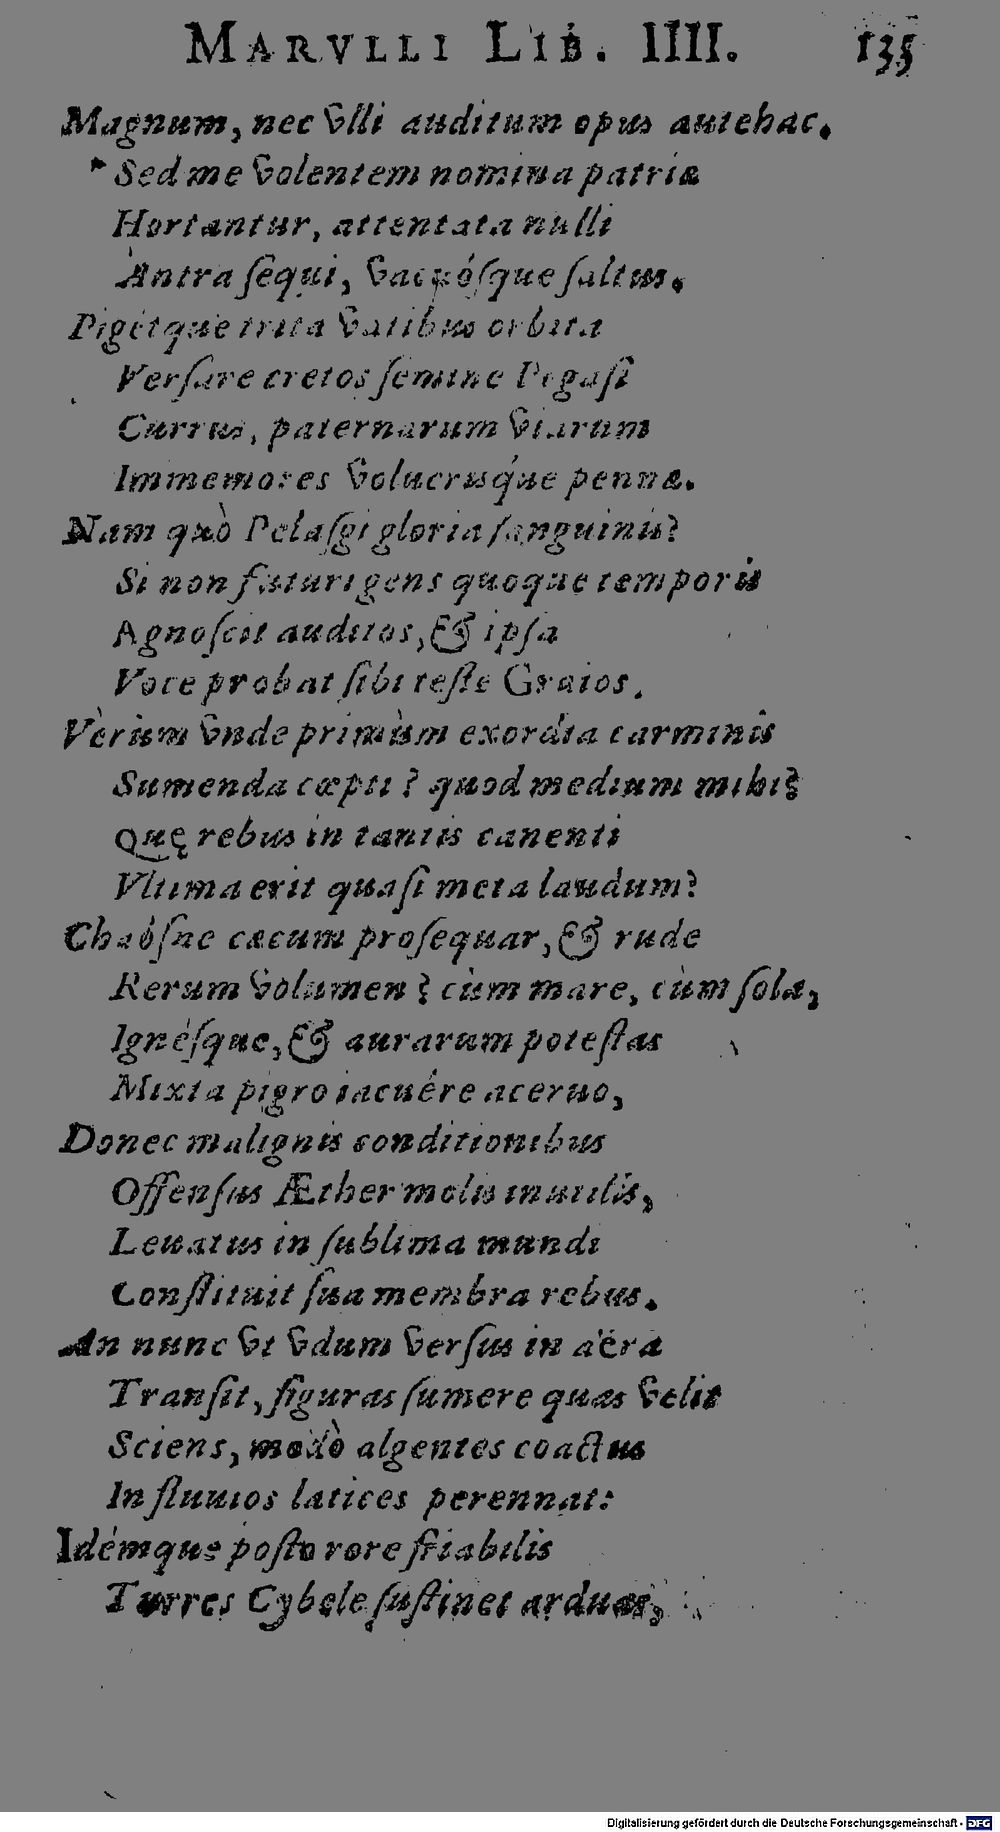 MARVLLI LIB. IIII. 135
Magnum, nec vlli auditum opus antehac.
Sed me volentem nomina patriæ
Hortantur, attentata nulli
Antra sequi, vacuósque saltus.
Pigétque trita vatibus orbita
Versare cretos semine Pegasi
Currus, paternarum viarum
Immemores volucrisq́ue pennæ.
Nam quò Pelasgi gloria sanguinis?
Si non futuri gens quoque temporis
Agnoscit auditos, & ipsa
Voce probat sibi teste Graios.
Vèrùm vnde primùm exordia carminis
Sumenda cœpti? quod medium mihi?
Quę rebus in tantis canenti
Vltima erit quasi meta laudum?
Chaósne cæcum prosequar, & rude
Rerum volumen? cùm mare, cùm sola,
Ignésque, & aurarum potestas
Mixta pigro iacuére aceruo,
Donec malignis conditionibus
Offensus Æther molis inutilis,
Leuatus in sublima mundi
Constituit sua membra rebus.
An nunc vt vdum versus in aëra
Transit, figuras sumere quas velit
Sciens, modò algentes coactus
In fluuios latices perennat:
Idémque posto rore friabilis
Turres Cybele sustinet arduas,
Digitalisierung gefördert durch die Deutsche Forschungsgemeinschaft - DFG